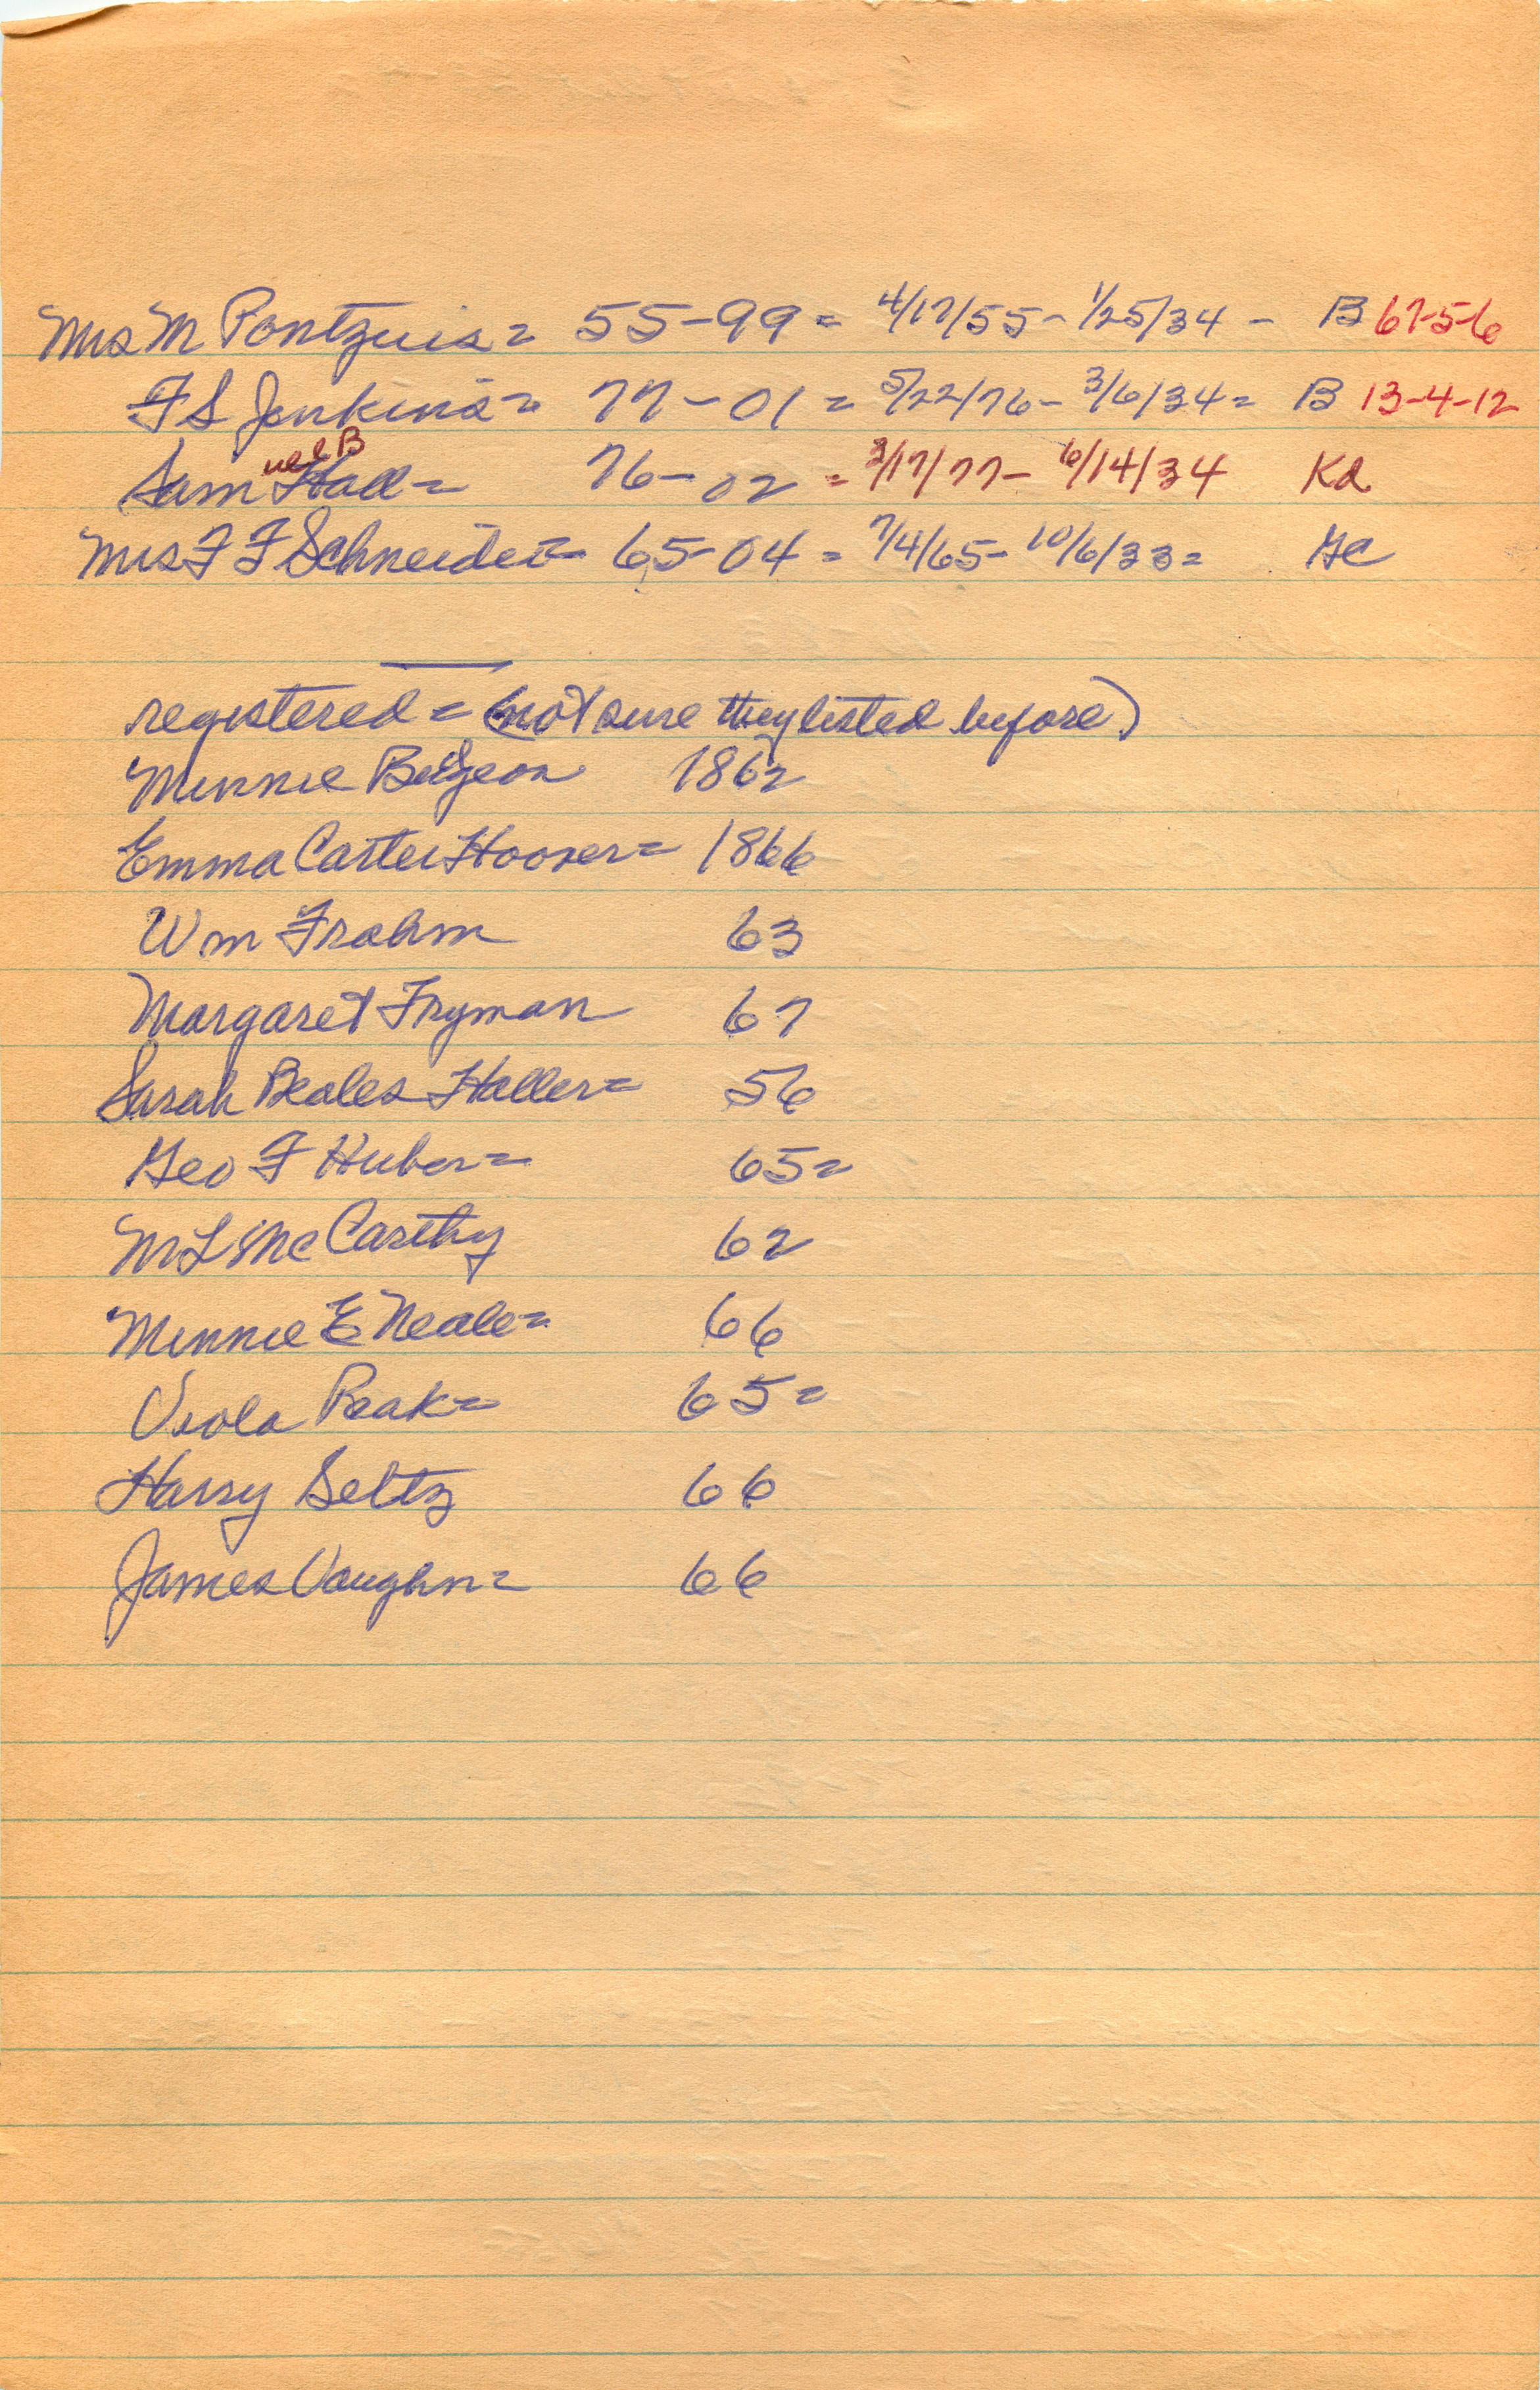 Mrs M Pontzuis = 55-99 = 4/17/55 - 1/25/34 - B 67-5-6
F S Jenkins = 77-01 = 5/22/76 - 3/6/34 = B 13-4-12
Samuel B Hall = 76-02 = 2/17/77 - 6/14/34 Kd
Mrs F F Schneider = 65-04 = 7/4/65 - 10/6/33 = GC
registered = (not sure they listed before)
Minnie 1862
Emma Carter Hoover = 1866
Wm Frahm 63
Margaret Fryman 67
Sarah Beales Haller = 56
Geo F Huber = 65 =
M L McCarthy 62
Minnie E Neale = 66
Viola Peak = 65 =
Harry Seltz 66
James Vaughn = 66